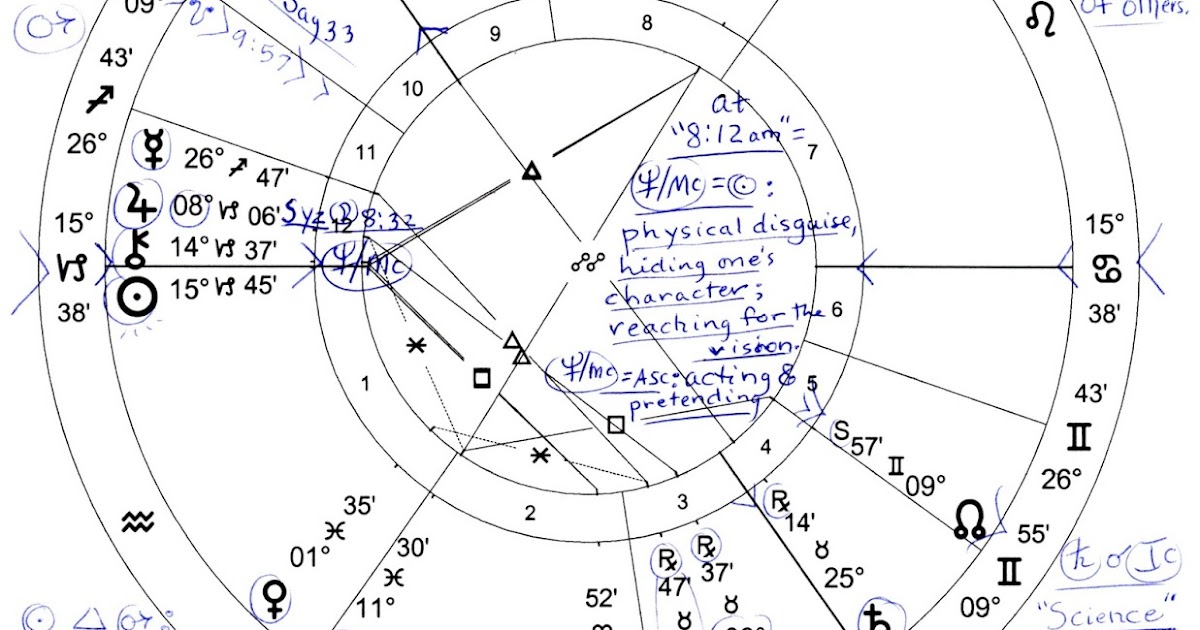 09°
43'
♐
26°
15°
♑
38'
♒
☿ 26° ♐ 47'
♃ 08° ♑ 06'
⚷ 14° ♑ 37'
☉ 15° ♑ 45'
9:57
Syz ☽ 8:32
Ψ/MC
8
9
10
11
12
1
2
3
4
5
6
7
at
"8:12am"=
Ψ/MC=☉:
physical disguise,
hiding one's
character;
reaching for the
vision.
Ψ/MC=ASC:acting &
pretending
♌
of others.
15°
♋
38'
43'
♊
26°
55'
♊
09°
S
57'
♊
09°
☊
℞
14'
♉
25°
♄
℞
37'
♉
℞
47'
♉
52'
♒
♀
01°
♓
35'
11°
♓
30'
☉ △
♄ ☌ IC
"Science"